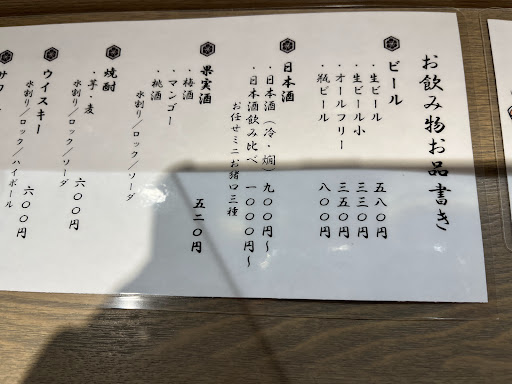 お飲み物お品書き
ビール
・生ビール 五八〇円
・生ビール小 三三〇円
・オールフリー 三五〇円
・瓶ビール 八〇〇円
日本酒
・日本酒(冷・燗)九〇〇円〜
・日本酒飲み比べ 一〇〇〇円〜
お任せミニお猪口三種
果実酒
・マンゴー 五二〇円
・梅酒
・桃酒
水割り/ロック/ソーダ
焼酎
・芋・麦 六〇〇円
水割り/ロック/ソーダ
ウイスキー 六〇〇円
水割り/ロック/ハイボール
サワー